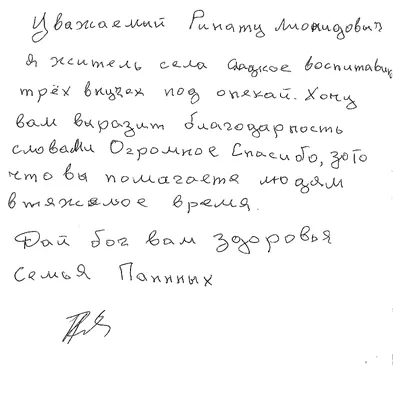 Уважаемий Ринату Лионидович
я житель села Сладкое воспитавщ
трёх внучех под опекай. Хочу
вам выразит благодарность
словами Огромное Спасибо, зато
что вы помагаете людям
в тяжелое время.
Дай бог вам здоровья
Семья Паниных